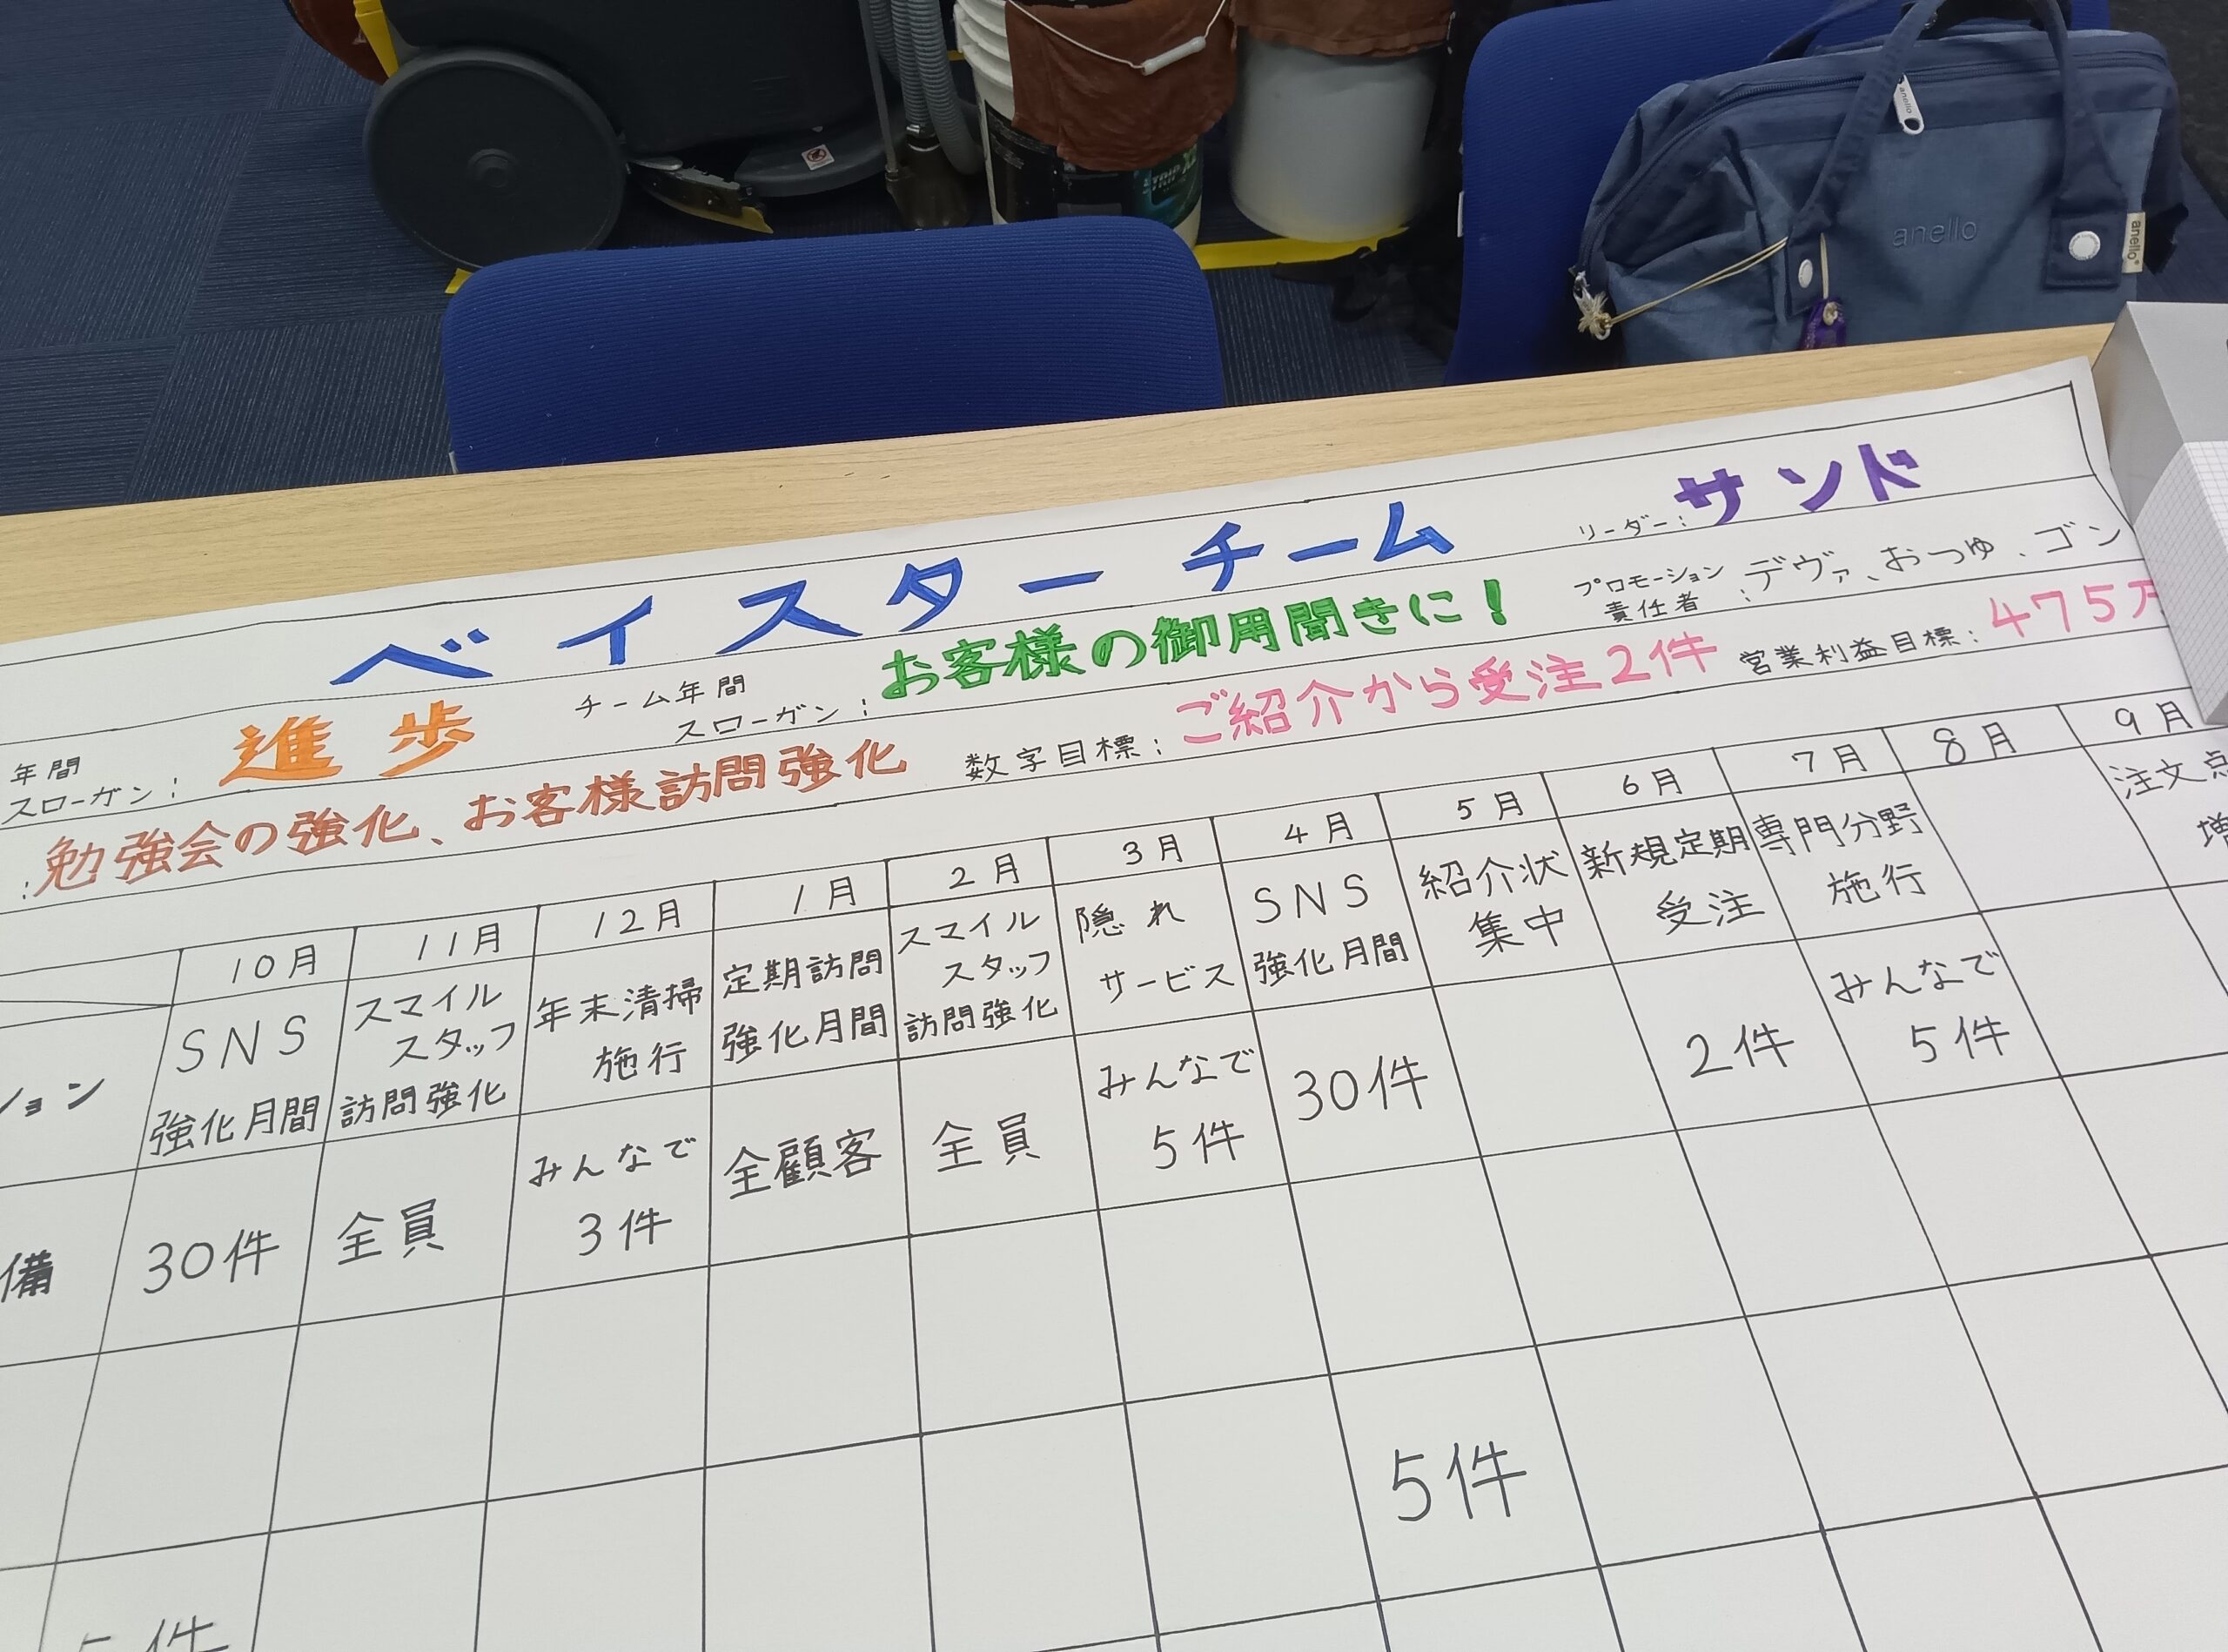 anello
anello
anello
ベイスターチーム
リーダー: サンド
年間スローガン: 進歩
チーム年間スローガン: お客様の御用聞きに!
プロモーション責任者: デヴァ、おつゆ、ゴン
: 勉強会の強化、お客様訪問強化
数字目標: ご紹介から受注2件
営業利益目標: 475万
10月 11月 12月 1月 2月 3月 4月 5月 6月 7月 8月 9月
ション
SNS
強化月間
スマイル
スタッフ
訪問強化
年末清掃
施行
定期訪問
強化月間
スマイル
スタッフ
訪問強化
隠れ
サービス
SNS
強化月間
紹介状
集中
新規定期
受注
専門分野
施行
注文点
増
備
30件
全員
みんなで
3件
全顧客
全員
みんなで
5件
30件
2件
みんなで
5件
5件
5件